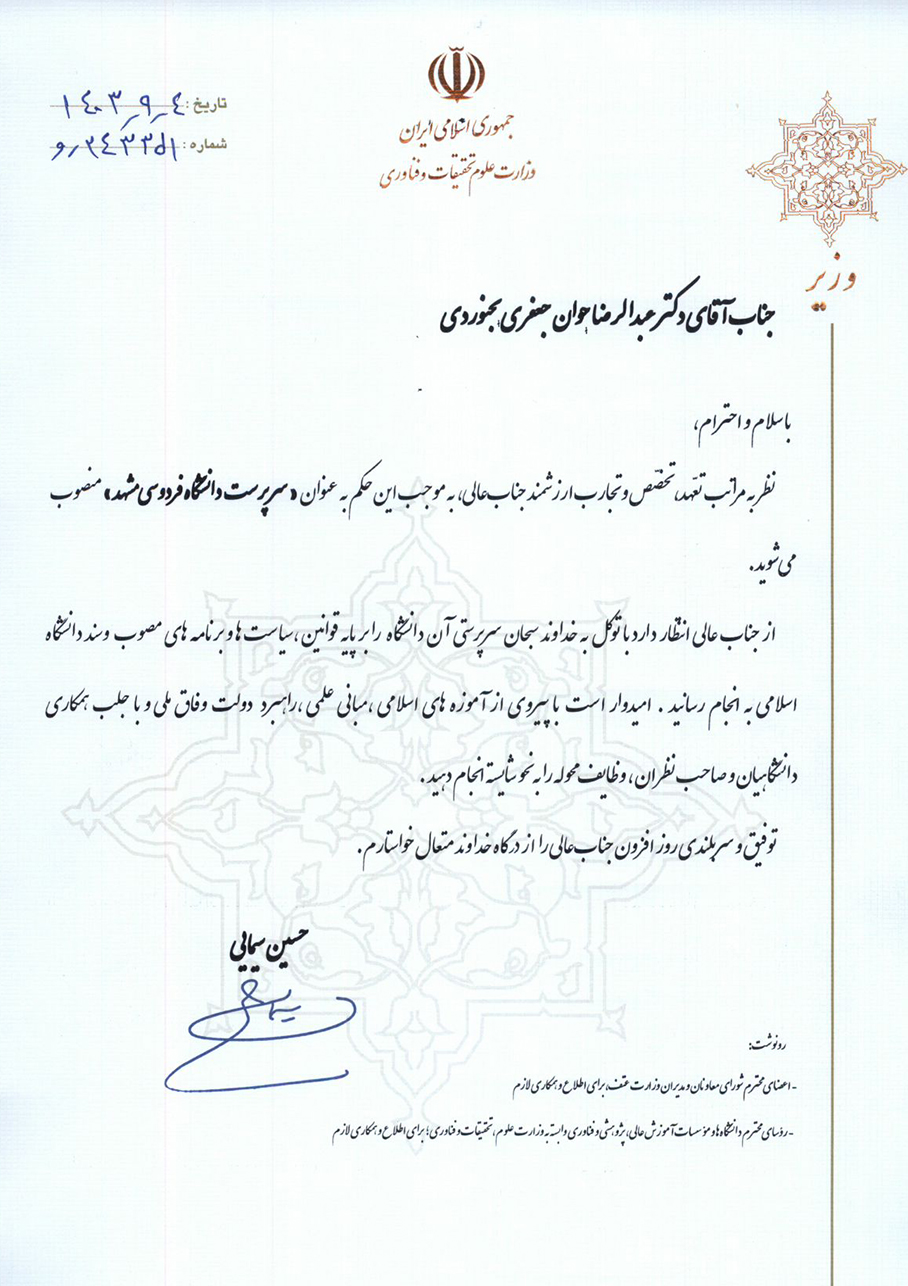 جمهوری اسلامی ایران
وزارت علوم تحقیقات و فناوری
تاریخ: ۱۴۰۳٫۹٫۴
شماره:
وزیر
جناب آقای دکتر عبدالرضا جوان جعفری بجنوردی
با سلام و احترام،
نظر به مراتب تعهّد، تخصّص و تجارب ارزشمند جناب عالی، به موجب این حکم به عنوان «سرپرست دانشگاه فردوسی مشهد» منصوب
می شوید.
از جناب عالی انتظار دارد با توکل به خداوند سبحان سرپرستی آن دانشگاه را بر پایه قوانین ،سیاست ها و برنامه های مصوب و سند دانشگاه
اسلامی به انجام رسانید . امیدوار است با پیروی از آموزه های اسلامی ،مبانی علمی ،راهبرد دولت وفاق ملی و با جلب همکاری
دانشگاهیان و صاحب نظران ، وظایف محوله را به نحو شایسته انجام دهید .
توفیق و سربلندی روز افزون جناب عالی را از درگاه خداوند متعال خواستارم .
حسین سیمایی
رونوشت:
- اعضای محترم شورای معاونان و مدیران وزارت عتف، برای اطلاع و همکاری لازم
- رؤسای محترم دانشگاه ها و مؤسسات آموزش عالی، پژوهشی و فناوری وابسته به وزارت علوم، تحقیقات و فناوری؛ برای اطلاع و همکاری لازم